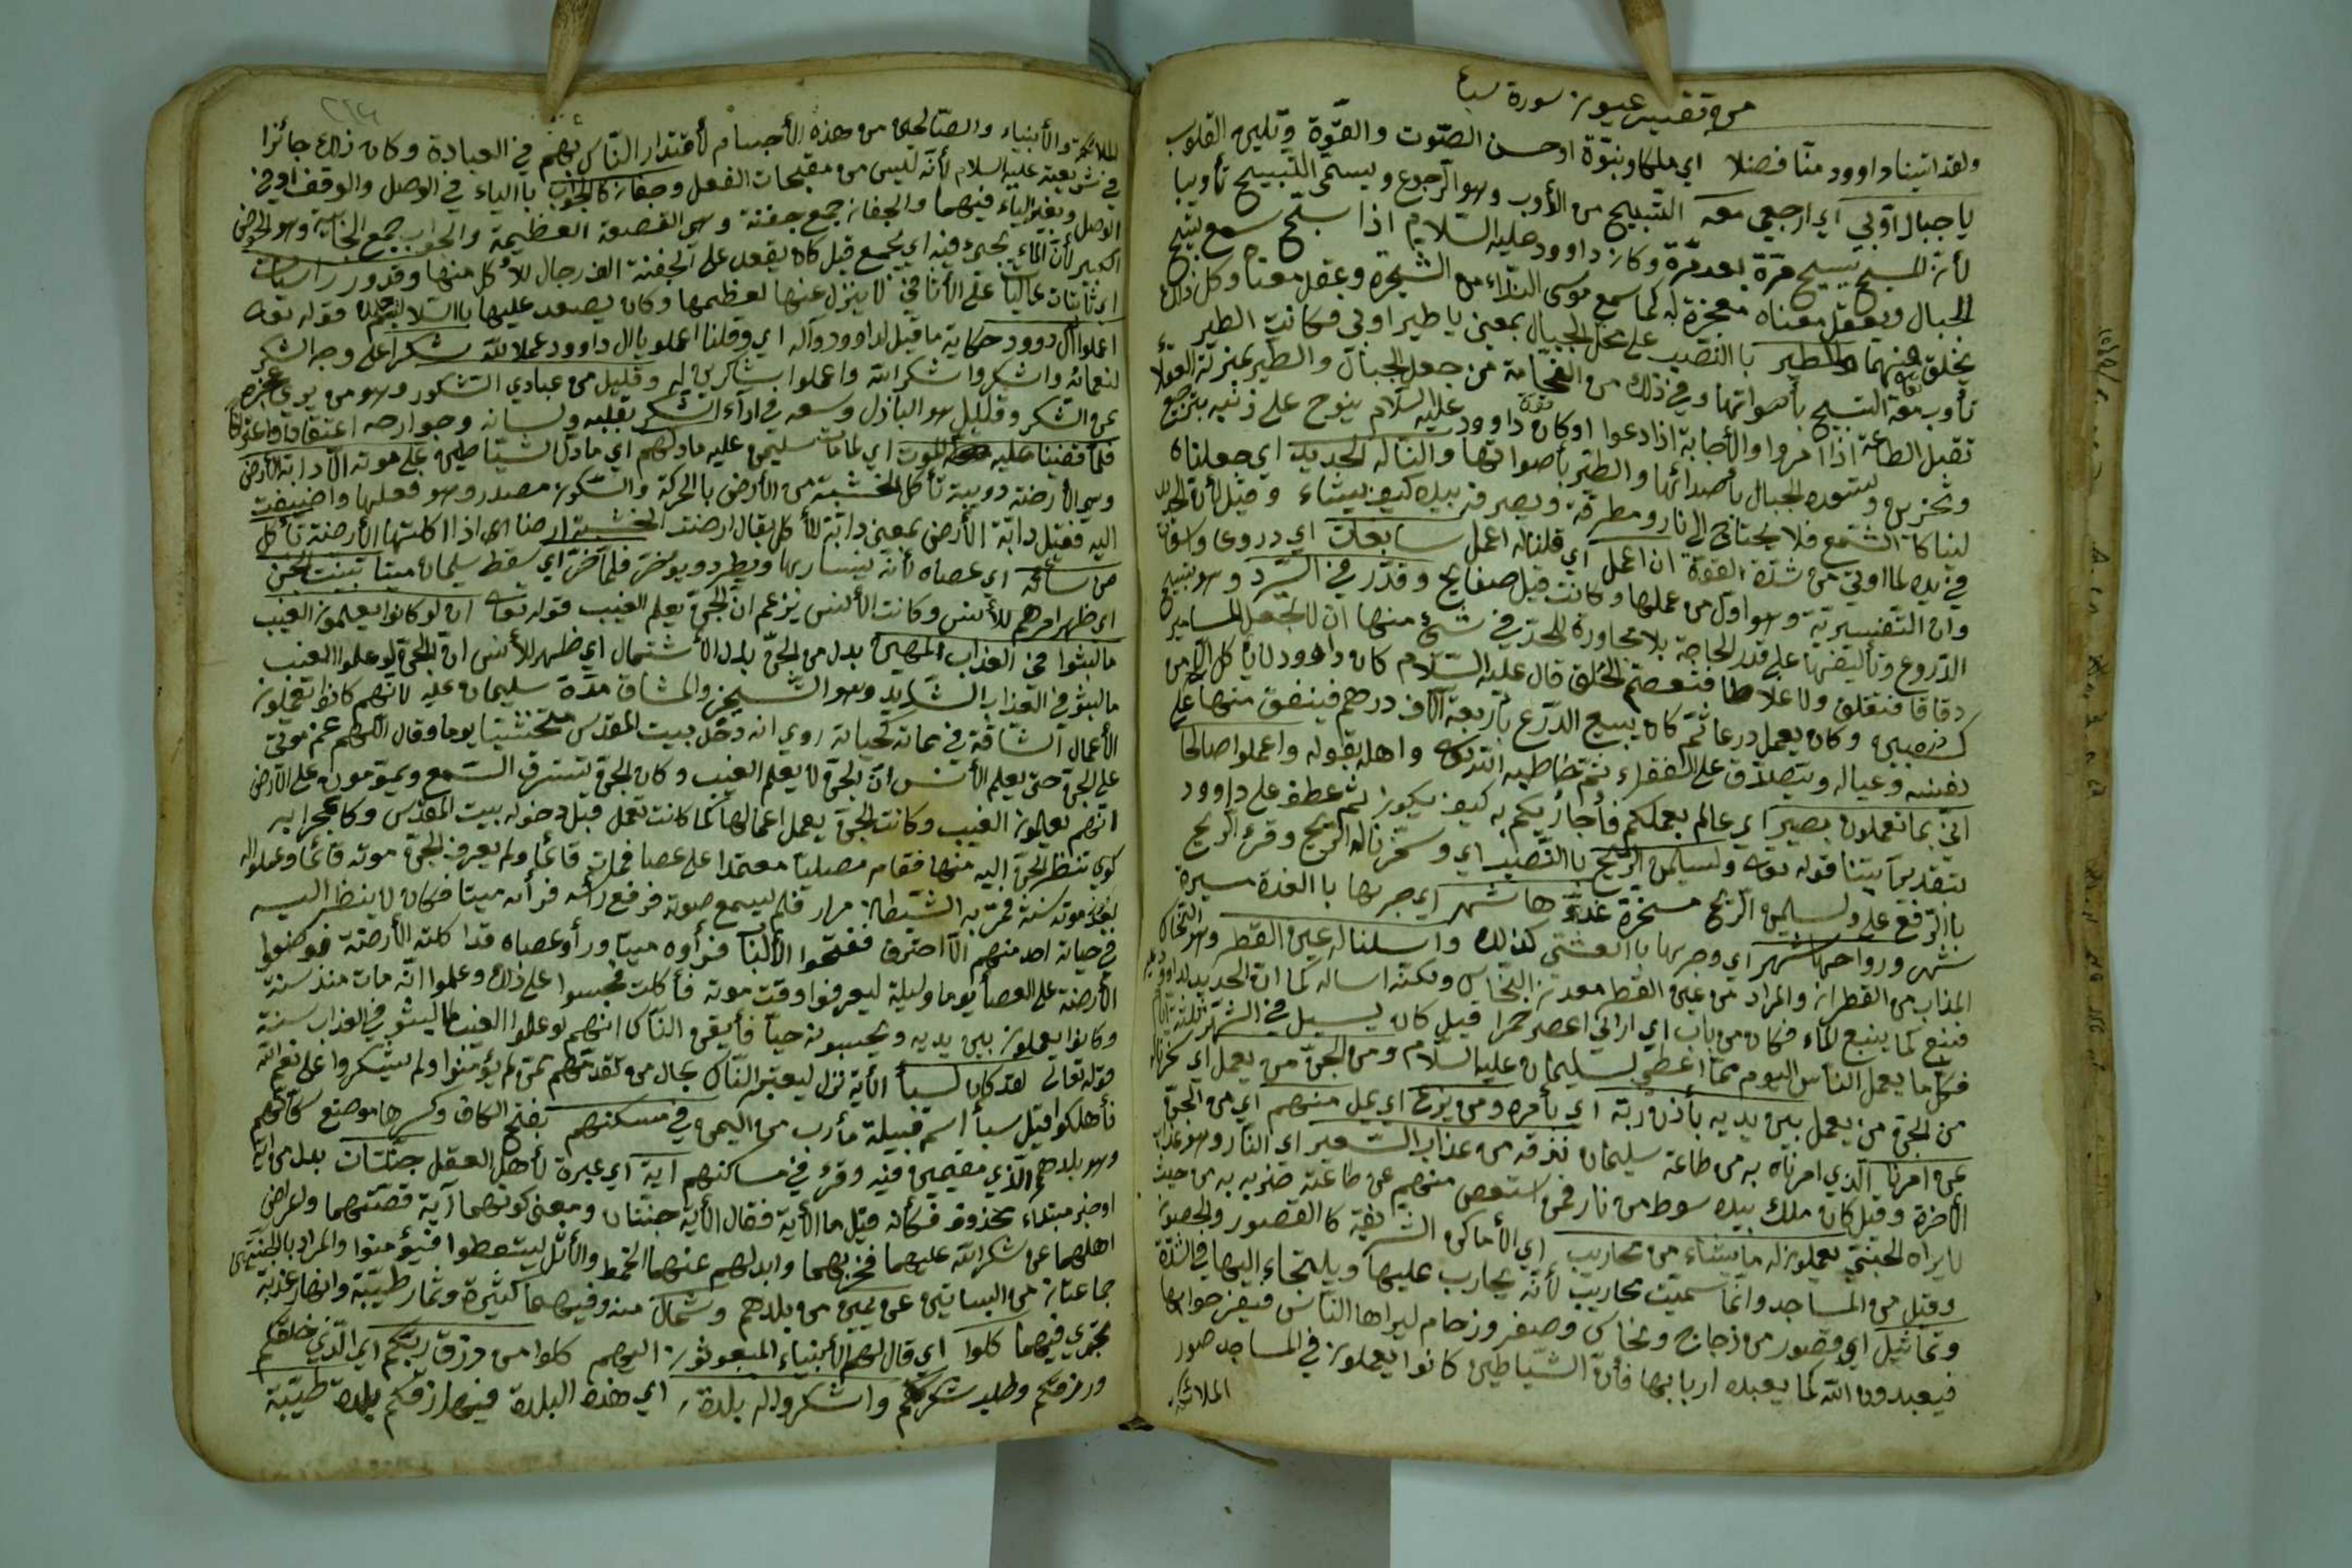 من تفسير عيون سورة سبأ
ولقد اتينا داوود منّا فضلا اي ملكا ونبوّة او حسن الصّوت والقوّة وتليين القلوب
يا جبال اوّبي اي ارجعي معه التسبيح من الأوب وهو الرجوع ويسمّى التسبيح تأويبا
لأن المسبح يسبح مرّة بعد مرّة وكان داوود عليه السلام اذا سبّح سمع تسبيح
الجبال ويعقل معناه معجزة له كما سمع موسى النداء من الشجرة وعقل معناه وكل ذلك
بخلق فيهما والطير بالنصب على محل الجبال بمعنى يا طير اوبي فكانت الطير
تأوب معه التسبيح بأصواتها وفي ذلك من الفخامة من جعل الجبال والطير بمنزلة العقلاء
تقبل الطاعة اذا امروا والأجابة اذا دعوا او كان داوود عليه السلام ينوح على ذنبه بترجيع
وتحزين وتسعده الجبال بأصدائها والطير بأصواتها والنا له الحديد اي جعلناه
لينا كالشمع فلا يحتاج الى نار ومطرقة ويصرفه بيده كيف يشاء وقيل لأن الحديد
في يده لما اوتي من شدة القوة ان اعمل اي قلنا له اعمل سابغات اي دروعا واسعات
وان التفسيرية وهو اول من عملها وكانت قبل صفايح وقدّر في السّرد وهو نسج
الدروع وتأليفها على قدر الحاجة بلا مجاوزة للحدّ في شيء منها ان لا تجعل المسامير
دقاقا فتقلق ولا غلاظا فتقصم الحلق قال عليه السّلام كان داوود لا يأكل الا من
كسب يده وكان يعمل درعا ثم كان يبيع الدرع بأربعة آلاف درهم فينفق منها على
نفسه وعياله ويتصدق على الفقراء ثم خاطبه الله تعالى واهله بقوله واعملوا صالحا
انّي بما تعملون بصير اي عالم بعملكم فأجازيكم به كيف يكون ثم عطف على داوود
بتقدير آتينا قوله تعالى ولسليمن الريح بالنصب اي وسخرنا له الريح وقرئ الريح
بالرفع على ولسليمن الريح مسخرة غدوّها شهر اي جريها بالغدة مسيرة
شهر ورواحها شهر اي وجريها بالعشي كذلك واسلنا له عين القطر وهو النحاس
المذاب من القطران والمراد من عين القطر معدن النحاس ولكنه اساله كما الان الحديد لداوود
فنبع كما ينبع الماء فكان من باب اي اراني اعصر خمرا قيل كان يسيل في الشهر ثلثة ايام
فكل ما يعمل الناس اليوم ممّا اعطي لسليمان عليه السلام ومن الجنّ من يعمل اي سخرنا له
من الجن من يعمل بين يديه بأذن ربّه اي بأمره ومن يزغ اي يمل منهم اي من الجنّ
عن امرنا الذي امرناه به من طاعة سليمان نذقه من عذاب السّعير اي النار وهو عذاب
الآخرة وقيل كان ملك بيده سوط من نار فمن استعصى منهم عن طاعته ضربه به من حيث
لا يراه الجني يعملون له ما يشاء من محاريب اي الأماكن الشريفة كالقصور والحصون
وقيل من المساجد وانّما سميت محاريب لأنّه يحارب عليها ويلتجاء اليها في الشدّة
وتماثيل اي وصور من زجاج ونحاس وصفر ورخام ليراها الناس
فيعبدون الله كما يعبده اربابها فأن الشياطين كانوا يعملون في المساجد صور
الملائكة
الملائكة والأنبياء والصّالحين من هذه الأجسام لأقتدار النّاس بهم في العبادة وكان ذلك جائزا
في شريعته عليه السلام لأنّه ليس من مقبحات الفعل وجفان كالجواب بالياء في الوصل والوقف او في
الوصل وبغير الياء فيهما والجفان جمع جفنة وهي القصعة العظيمة والجواب جمع الجابية وهو الحوض
الكبير لأنّ الماء يجبى فيه اي يجمع قيل كان يقعد على الجفنة الف رجال للأكل منها وقدور راسيات
اي ثابتات عاليات على الأثافي لا ينزل عنها لعظمها وكان يصعد عليها بالسلالم قوله تعالى
اعملوا آل داوود حكاية ما قيل لداوود وآله اي وقلنا اعملو يا ال داوود عملا للّه شكرا على وجه الشكر
لنعمائه واشكروا شكر الله واعملوا بشاكرين له وقليل من عبادي الشكور وهو من يرى عجزه
عن الشكر وقليل هو الباذل وسعه في اداء الشكر بقلبه ولسانه وجوارحه اعتقادا واعترافا
فلمّا قضينا عليه الموت اي لما مات سليمن عليه ما دلهم اي ما دل الشياطين على موته الا دابة الأرض
وهي الأرضة دويبة تأكل الخشبة من الأرض بالحركة والسكون مصدر وهو فعلها واضيفت
اليه فقيل دابة الأرض بمعنى دابة الأكل يقال ارضت الخشبة ارضا اي اذا اكلتها الأرضة تأكل
من سأته اي عصاه لأنه ينساء بها ويطرد ويؤخر فلما خرّ اي سقط سليمان ميتا تبينت الجن
اي ظهر امرهم للأنس وكانت الأنس تزعم ان الجنّ يعلم الغيب قوله تعالى ان لو كانوا يعلمون الغيب
ما لبثوا في العذاب المهين بدل من الجنّ بدل الأشتمال اي ظهر للأنس ان الجنّ لو علموا الغيب
ما لبثو في العذاب الشديد وهو التسخير والمشاق مدّة سليمان عليه لأنّهم كانوا يعملون
الأعمال الشّاقة في مماته كحياته روي انه دخل بيت المقدس متحنثيا يوما وقال اللّهم عمّ موتي
على الجنّ حتى يعلم الأنس انّ الجنّ لا يعلم الغيب وكان الجنّ يسترق السّمع ويموّهون على الأرض
انّهم يعلمون الغيب وكانت الجنّ يعمل اعمالها كما كانت تعمل قبل دخوله بيت المقدس وكان لمحرابه
كوى تنظر الجنّ اليه منها فقام مصليا معتمدا على عصا فمات قائما ولم يعرف الجنّ موته قائما وعملوا له
بعد موته سنة فمرّ به الشيطان مرار فلم يسمع صوته فرفع رأسه فرأه ميتا فكان لا ينظر اليه
في حياته احد منهم الّا احترق ففتحوا الباب فرأوه ميتا ورأو عصاه قد اكلته الأرضة فوضعوا
الأرضة على العصا يوما وليلة ليعرفوا وقت موته فأكلت فحسبوا على ذلك وعلموا انّه مات منذ سنة
وكانوا يعملون بين يديه ويحسبونه حيّا فأيقن الناس انّهم لو علموا الغيب ما لبثو في العذاب سنة
قوله تعالى لقد كان لسبأ الآية نزل ليعتبر النّاس بحال من تقدّمهم ممّن لم يؤمنوا ولم يشكروا على نعم الله
فأهلكوا قيل سبأ اسم قبيلة مأرب من اليمن في مسكنهم بفتح الكاف وكسرها موضع سكناهم
وهو بلدهم الّذي مقيمين فيه وقرئ في مساكنهم آية اي عبرة لأهل العقل جنّتان بدل من آية
او خبر مبتداء محذوف فكأنه قيل ما الأية فقال الأية جنتان ومعنى كونهما آية قصّتهما واعراض
اهلهما عن شكر الله عليهما فخرّبهما وابدلهم عنهما الخمط والأثل ليتّعظوا فيؤمنوا والمراد بالجنتين
جماعتان من البساتين عن يمين من بلدهم وشمال منه وفيهما كثيرة وثمار طيّبة وانهار عذبة
تجري فيهما كلوا اي قال لهم الأنبياء المبعوثون اليهم كلوا من رزق ربّكم اي الّذي خلقكم
ورزقكم وطلب شكركم واشكروا له بلدة اي هذه البلدة فيها رزقكم بلدة طيّبة